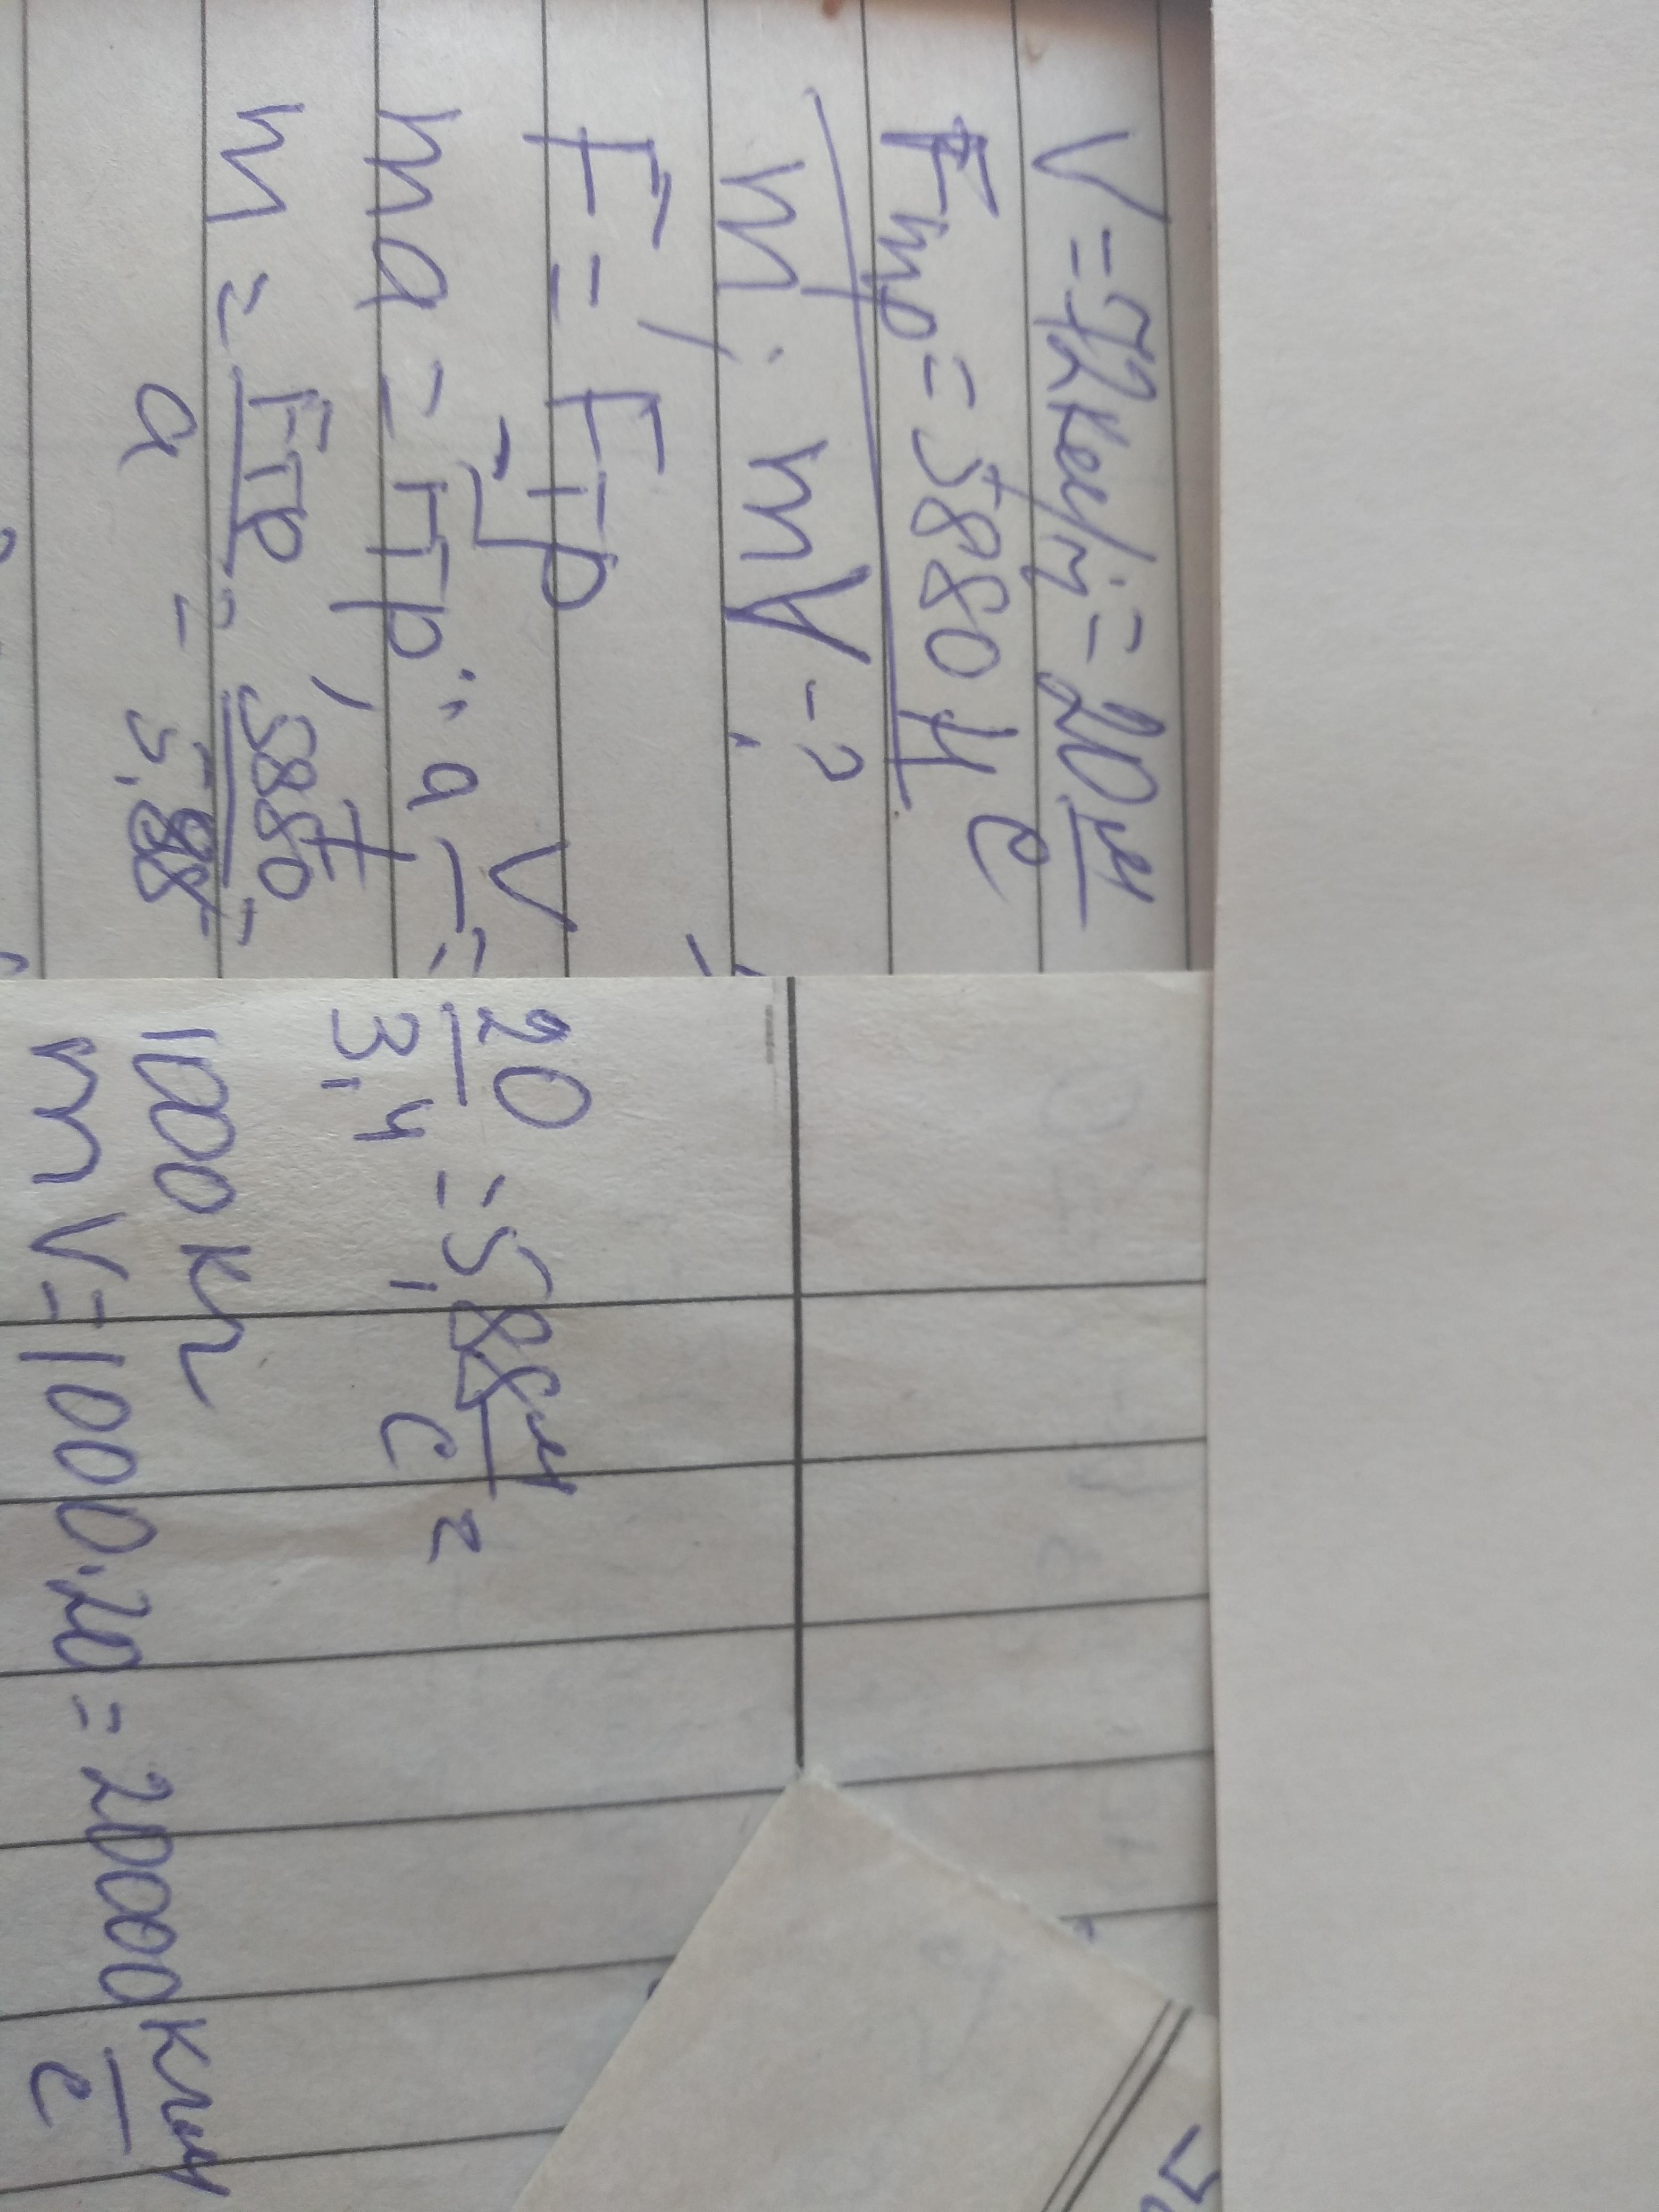 V = 72 км/ч = 20 м/с
Fтр = 5880 Н
m; mV - ?
F = Fтр
ma = Fтр; a = V/t = 20/3,4 = 5,88 м/с²
m = Fтр/a = 5880/5,88 = 1000 кг
mV = 1000·20 = 20000 кгм/с